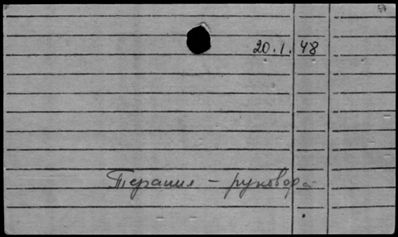 20.1.48
Терапия – руковод